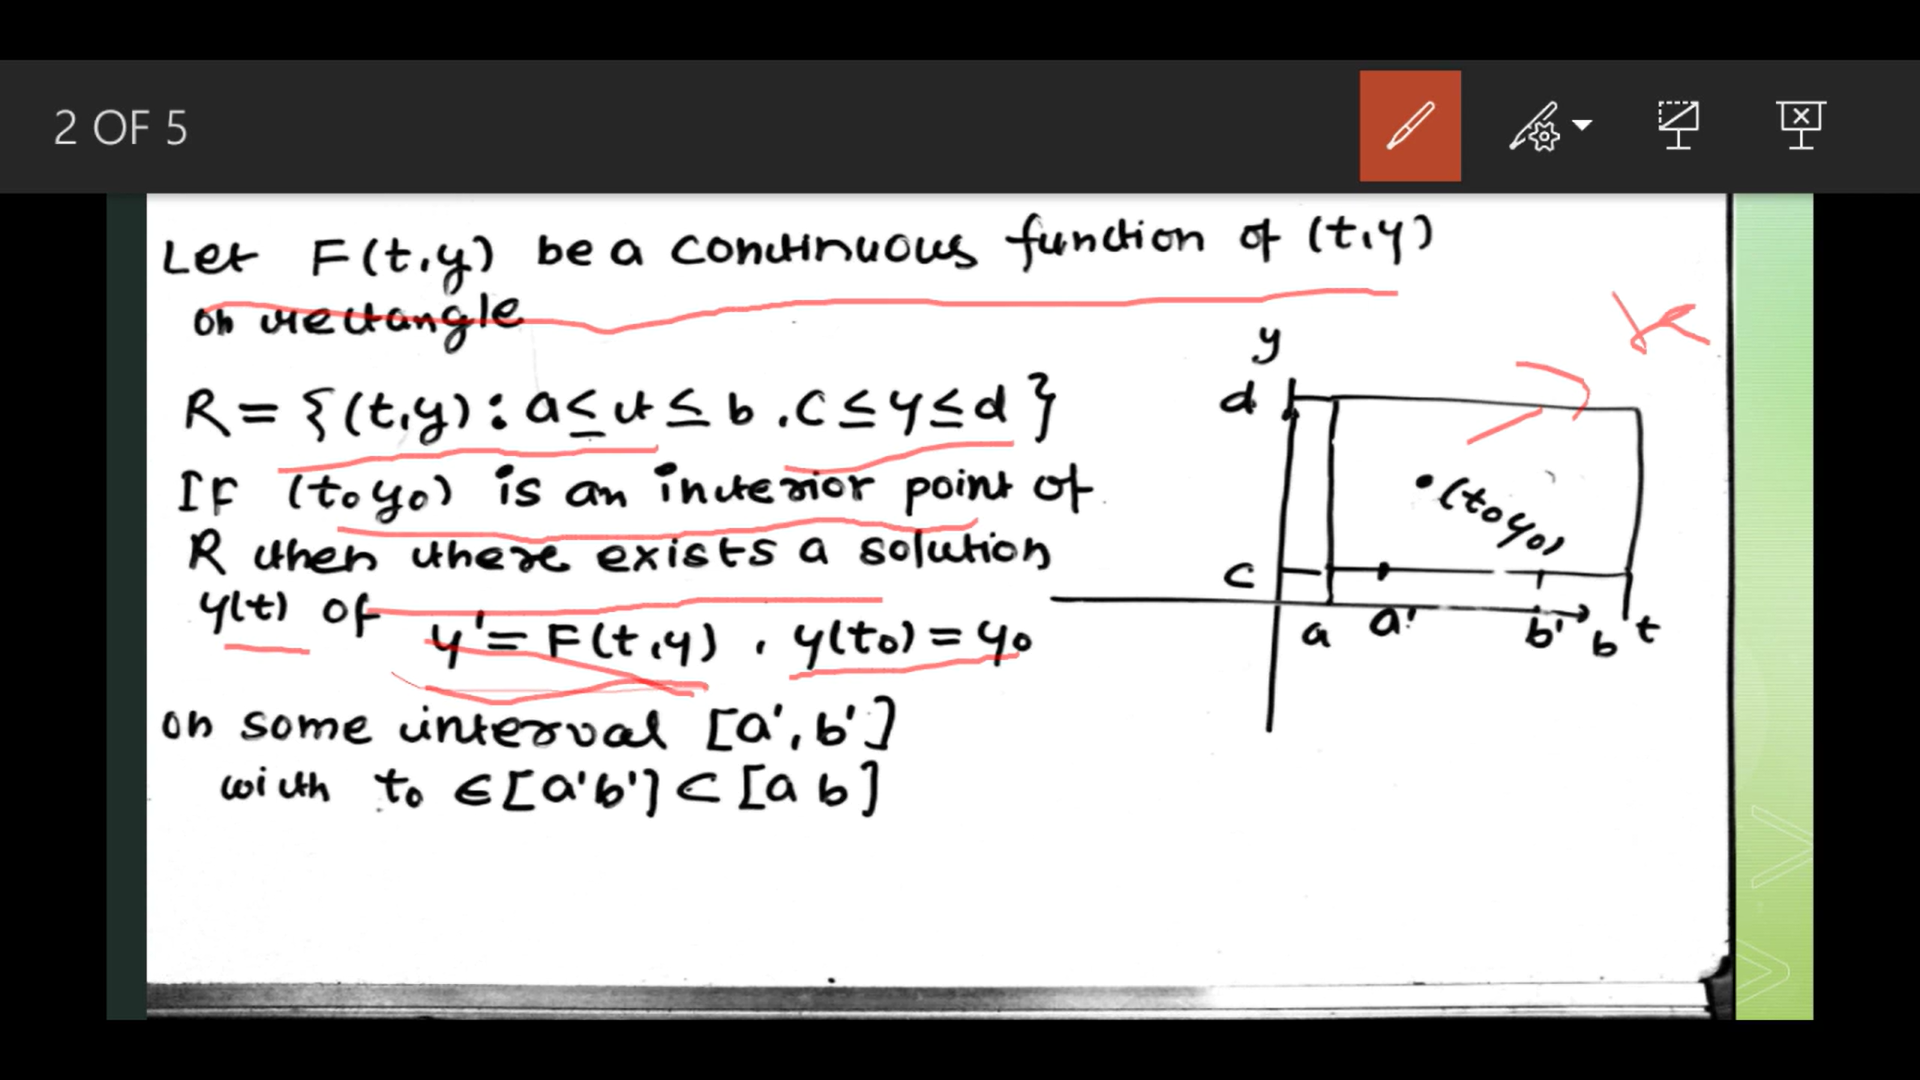 2 OF 5
Let F(t,y) be a continuous function of (t,y)
on rectangle
R = {(t,y) : a ≤ t ≤ b , c ≤ y ≤ d }
If (t₀ y₀) is an interior point of
R then there exists a solution
y(t) of
y' = F(t,y) , y(t₀) = y₀
on some interval [a', b']
with t₀ ∈ [a' b'] ⊂ [a b]
y
d
(t₀ y₀)
c
a a' b' b t